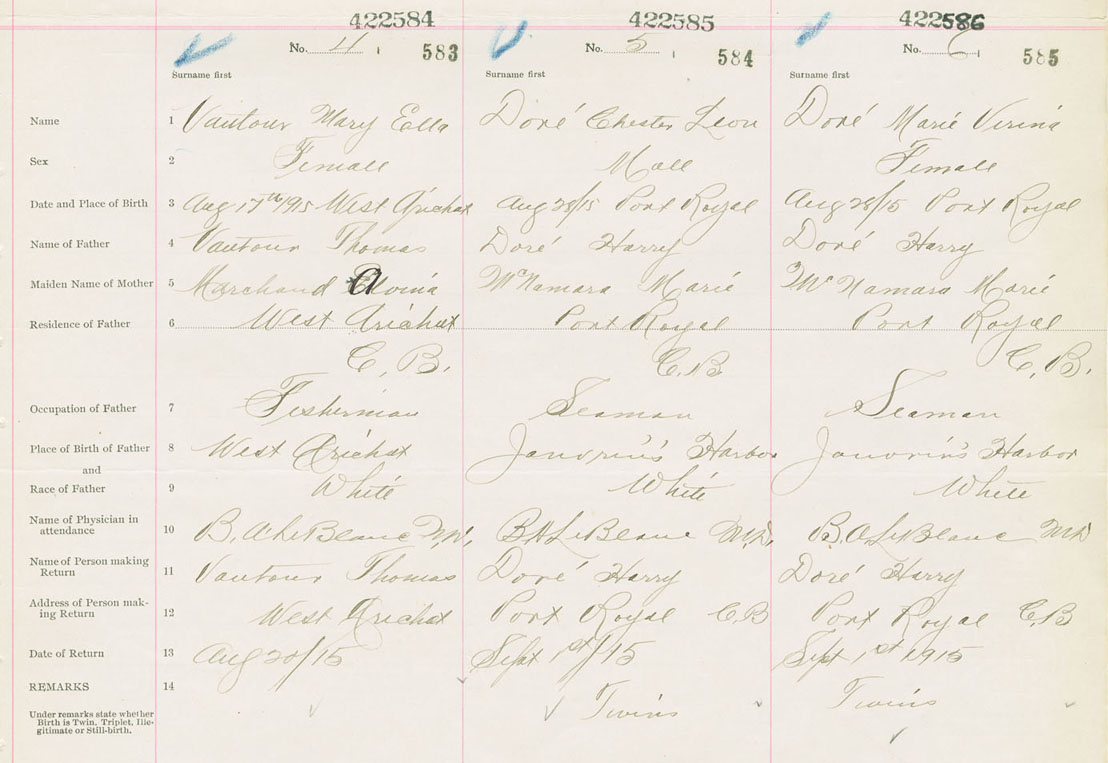 422584 422585 422586
No. 4 583 No. 5 584 No. 6 585
Surname first Surname first Surname first
Name 1 Vautour Mary Ella Doré Chester Leon Doré Marié Virina
Sex 2 Female Male Female
Date and Place of Birth 3 Aug 17th 1915 West Arichat Aug 28/15 Port Royal Aug 28/15 Port Royal
Name of Father 4 Vautour Thomas Doré Harry Doré Harry
Maiden Name of Mother 5 Marchand McNamara Marié McNamara Marié
Residence of Father 6 West Arichat Port Royal Port Royal
C. B. C.B C. B.
Occupation of Father 7 Fisherman Seaman Seaman
Place of Birth of Father 8 West Arichat Janvrin's Harbor Janvrin's Harbor
and
Race of Father 9 White White White
Name of Physician in
attendance 10 B. A LeBlanc M.D. B A LeBlanc M.D. B. A LeBlanc MD
Name of Person making
Return 11 Vautour Thomas Doré Harry Doré Harry
Address of Person mak-
ing Return 12 West Arichat Port Royal C.B Port Royal C.B
Date of Return 13 Aug 20/15 Sept 1st/15 Sept 1st 1915
REMARKS 14
Under remarks state whether
Birth is Twin, Triplet, Ille-
gitimate or Still-birth.
Twins Twins